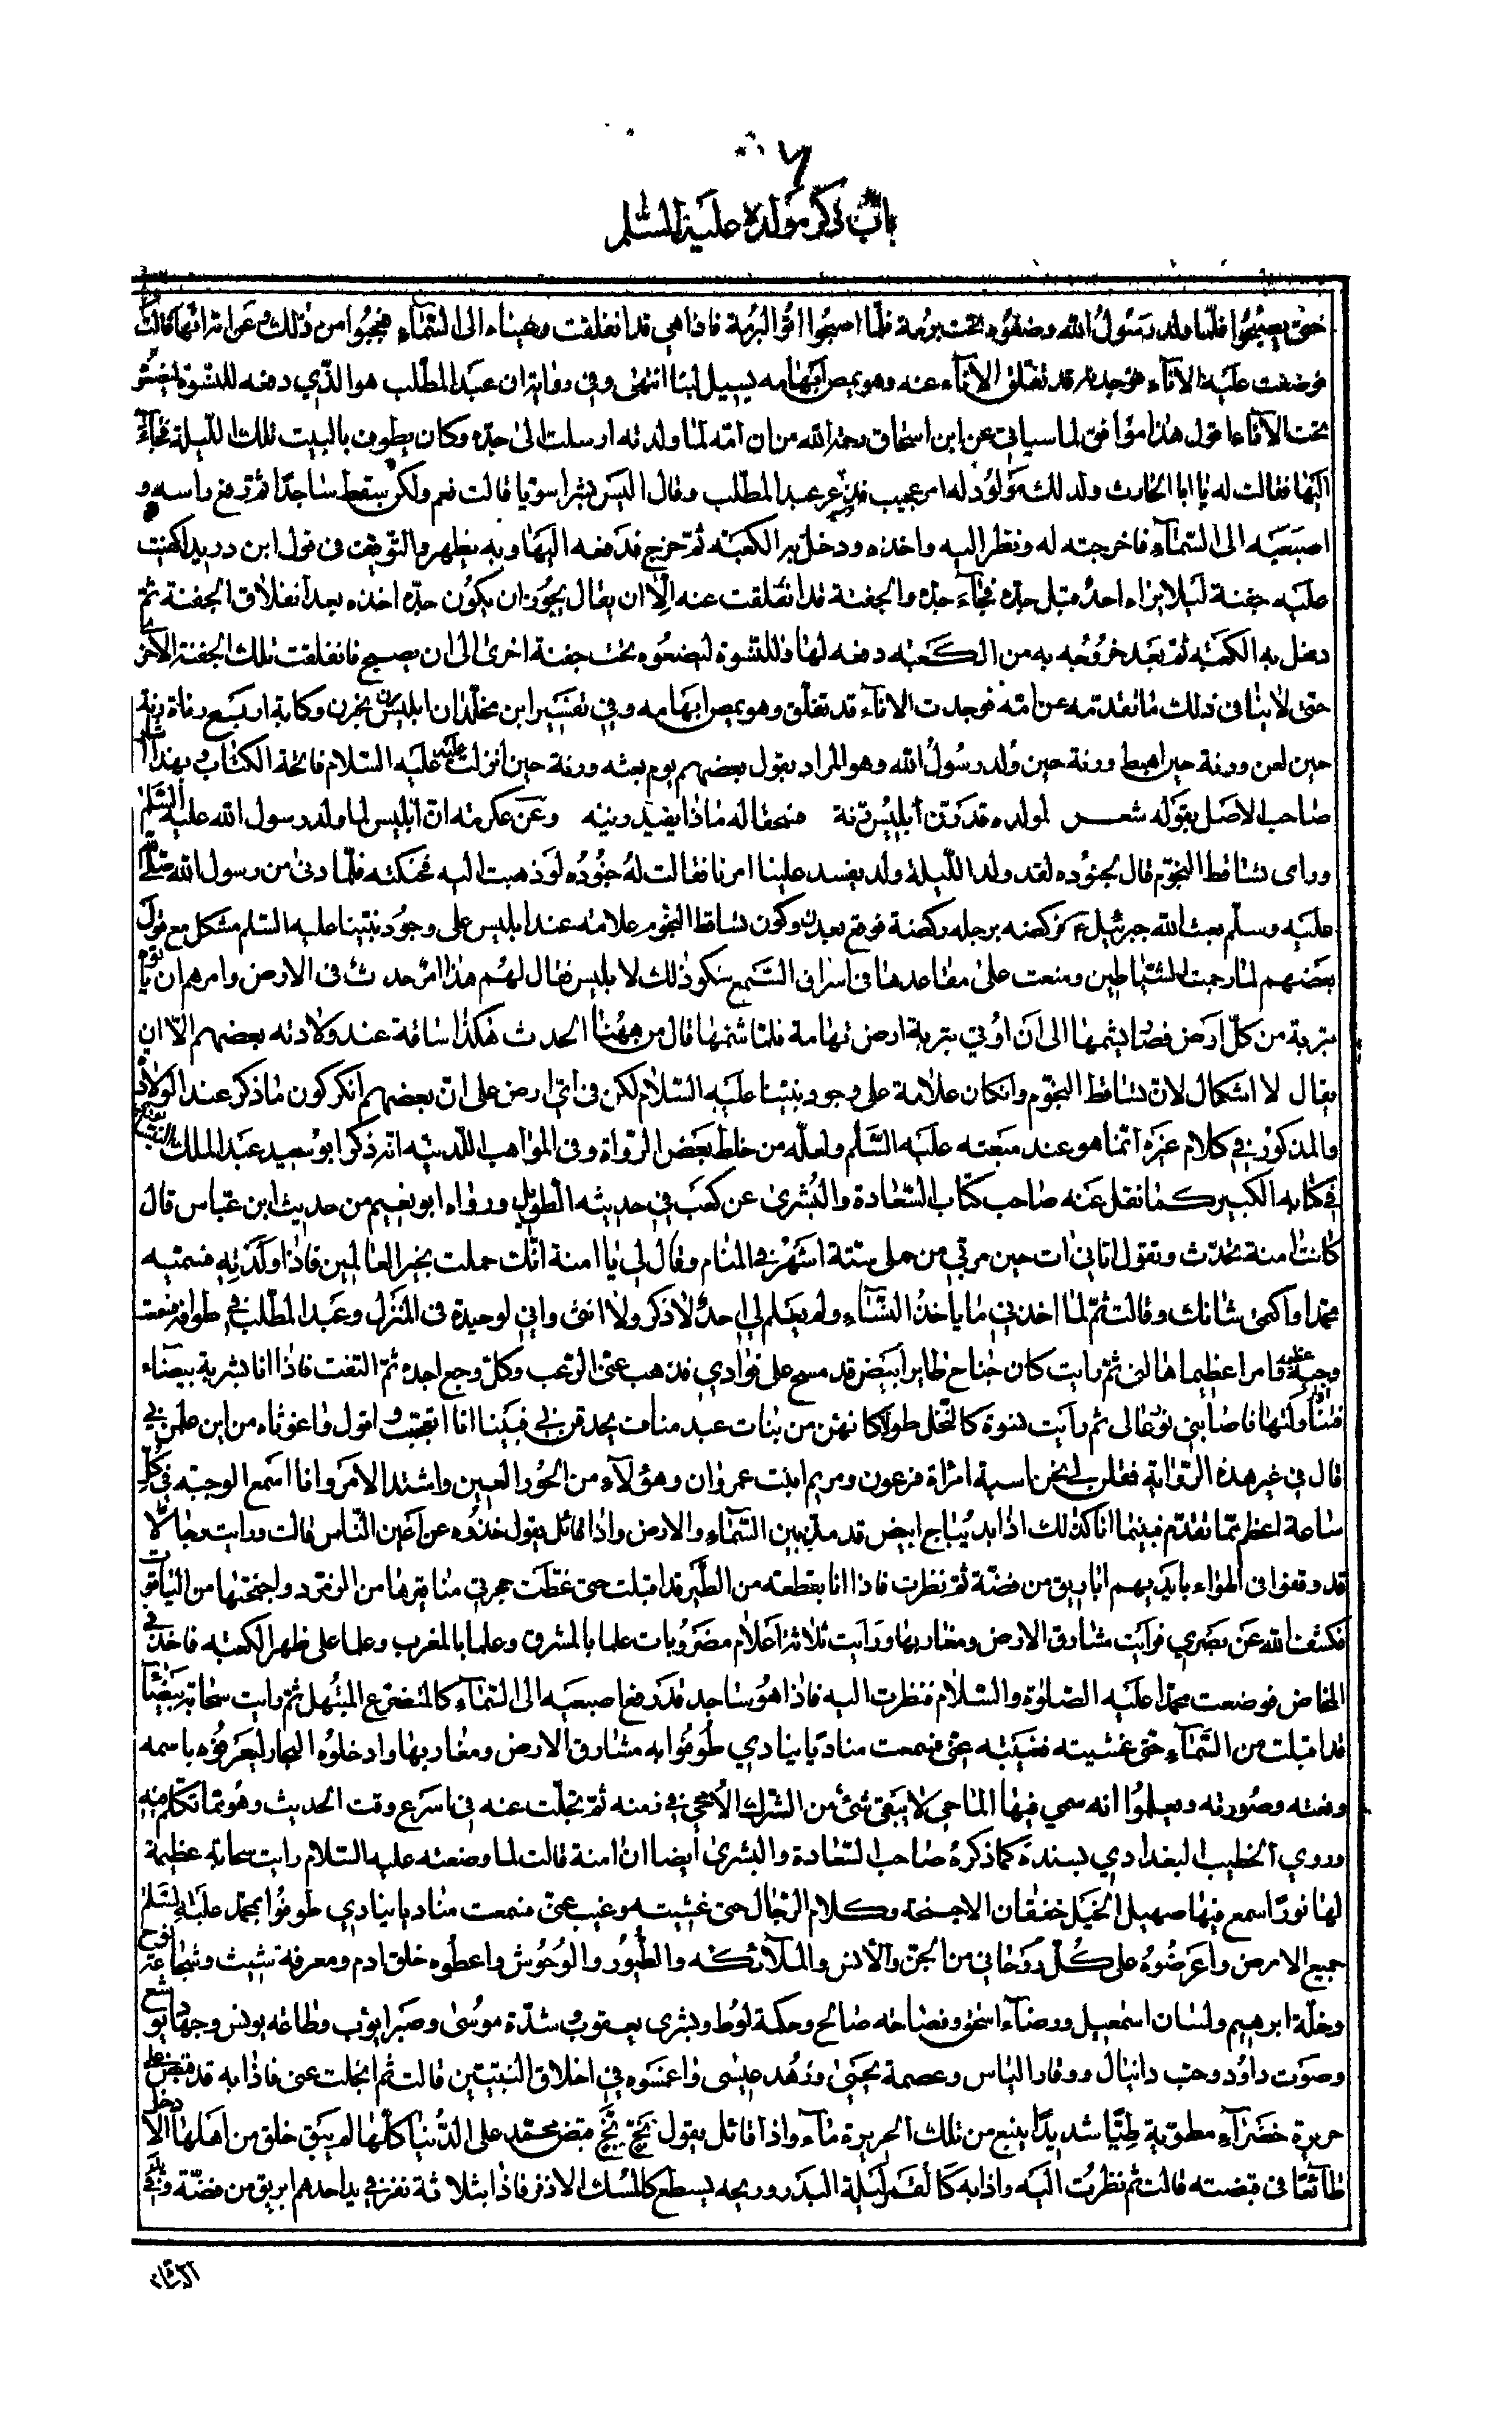 باب ذكر مولده عليه السلم
حتى يصبحوا فلما ولد رسول الله وضعوه تحت برمة فلما اصبحوا اتوا البرمة فاذا هي قد انفلقت وعيناه الى السماء فعجبوا من ذلك وعن امه انها قالت
فوضعت عليه الاناء فوجدته قد تفلق الاناء عنه وهو يمص ابهامه يسيل لبنا انتهى وفي رواية ان عبد المطلب هو الذي دفعه للنسوة ليضعنه
تحت الاناء اقول هذا موافق لما سياتي عن ابن اسحاق رحمه الله من ان امه لما ولدته ارسلت الى جده وكان يطوف بالبيت تلك الليلة فجاء
اليها فقالت له يا ابا الحارث ولد لك مولود له امر عجيب فذعر عبد المطلب وقال اليس بشرا سويا قالت نعم ولكن سقط ساجدا ثم رفع راسه و
اصبعيه الى السماء فاخرجته له ونظر اليه واخذه ودخل به الكعبة ثم خرج فدفعه اليها وبه يظهر التوقف في قول ابن دريد اكفئت
عليه جفنة ليلا يراه احد قبل جده فجاء جده والجفنة قد انفلقت عنه الا ان يقال يجوز ان يكون جده اخذه بعد انفلاق الجفنة ثم
دخل به الكعبة ثم بعد خروجه به من الكعبة دفعه لها وللنسوة ليضعوه تحت جفنة اخرى الى ان يصبح فانفلقت تلك الجفنة الاخرى
حتى لا ينافى ذلك ما تقدم عن امه فوجدت الاناء قد تفلق وهو يمص ابهامه وفي تفسير ابن مخلد ان ابليس رن اربع رنات رنة
حين لعن ورنة حين اهبط ورنة حين ولد رسول الله وهو المراد بقول بعضهم يوم بعثه ورنة حين انزلت عليه عليه السلام فاتحة الكتاب والى هذا اشار
صاحب الاصل بقوله شعر لمولده قد رن ابليس رنة فسحقا له ماذا يفيد رنينه وعن عكرمة ان ابليس لما ولد رسول الله عليه السلم
وراى تساقط النجوم قال لجنوده لقد ولد الليلة ولد يفسد علينا امرنا فقالت له جنوده لو ذهبت اليه فخبلته فلما دنى من رسول الله صلى الله
عليه وسلم بعث الله جبرئيل فركضه برجله ركضة فوقع بعدن وكون تساقط النجوم علامة عند ابليس على وجود نبينا عليه السلم مشكل مع قول
بعضهم لما رجمت الشياطين ومنعت على مقاعدها في استراق السمع شكو ذلك لابليس فقال لهم هذا امر حدث في الارض وامرهم ان ياتوه
بتربة من كل ارض فصار يشمها الى ان اوتي بتربة ارض تهامة فلما شمها قال من ههنا الحدث هكذا ساقه عند ولادته بعضهم الا ان
يقال لا اشكال لان تساقط النجوم وان كان علامة على وجود نبينا عليه السلام لكن في اي ارض على ان بعضهم انكر كون ما ذكر عند الولادة
والمذكور في كلام غيره انما هو عند مبعثه عليه السلم ولعله من خلط بعض الرواة وفي المواهب اللدنية انه ذكر ابو سعيد عبد الملك النيسابوري
في كتابه الكبير كما نقل عنه صاحب كتاب السعادة والبشرى عن كعب في حديثه الطويل ورواه ابو نعيم من حديث ابن عباس قال
كانت امنة تحدث وتقول اتاني ات حين مر بي من حملي ستة اشهر في المنام وقال لي يا امنة انك حملت بخير العالمين فاذا ولدته فسميه
محمدا واكتمي شانك وقالت ثم لما اخذني ما ياخذ النساء ولم يعلم لي احد لا ذكر ولا انثى واني لوحيدة في المنزل وعبد المطلب في طوافه فسمعت
وجبة عظيمة وامرا عظيما هالني ثم رايت كان جناح طاير ابيض قد مسح على فؤادي فذهب عني الرعب وكل وجع اجده ثم التفت فاذا انا بشربة بيضاء
فتناولتها فاصابني نور عالى ثم رايت نسوة كالنخل طولا كانهن من بنات عبد مناف يحدقن بي فبينا انا اتعجب واقول واغوثاه من اين علمن بي
قال في غير هذه الرواية فقلن لي نحن اسية امراة فرعون ومريم ابنت عمران وهؤلاء من الحور العين واشتد الامر وانا اسمع الوجبة في كل
ساعة اعظم مما تقدم فبينما انا كذلك اذا بديباج ابيض قد مد بين السماء والارض واذا قائل يقول خذوه عن اعين الناس قالت ورايت رجالا
قد وقفوا في الهواء بايديهم اباريق من فضة ثم نظرت فاذا انا بقطعة من الطير قد اقبلت حتى غطت حجرتي مناقيرها من الزمرد واجنحتها من الياقوت
فكشف الله عن بصري فرايت مشارق الارض ومغاربها ورايت ثلاثة اعلام مضروبات علما بالمشرق وعلما بالمغرب وعلما على ظهر الكعبة فاخذني
المخاض فوضعت محمدا عليه الصلوة والسلام فنظرت اليه فاذا هو ساجد قد رفع اصبعيه الى السماء كالمتضرع المبتهل ثم رايت سحابة بيضاء
قد اقبلت من السماء حتى غشيته فغيبته عني فسمعت مناديا ينادي طوفوا به مشارق الارض ومغاربها وادخلوه البحار ليعرفوه باسمه
ونعته وصورته ويعلموا انه سمي فيها الماحي لا يبقى شئ من الشرك الا محي في زمنه ثم تجلت عنه في اسرع وقت الحديث وهو مما تكلم فيه
وروى الخطيب البغدادي بسنده كما ذكره صاحب السعادة والبشرى ايضا ان امنة قالت لما وضعته عليه السلام رايت سحابة عظيمة
لها نور اسمع فيها صهيل الخيل خفقان الاجنحة وكلام الرجال حتى غشيته وغيب عني فسمعت مناديا ينادي طوفوا بمحمد عليه السلم
جميع الارض واعرضوه على كل روحاني من الجن والانس والملائكة والطيور والوحوش واعطوه خلق ادم ومعرفة شيث وشجاعة نوح
وخلة ابرهيم ولسان اسمعيل ورضاء اسحق وفصاحة صالح وحكمة لوط وبشرى يعقوب وشدة موسى وصبر ايوب وطاعة يونس وجهاد يوشع
وصوت داود وحب دانيال ووقار الياس وعصمة يحيى وزهد عيسى واغمسوه في اخلاق النبيين قالت ثم انجلت عني فاذا به قد قبض على
حريرة خضراء مطوية طيا شديدا ينبع من تلك الحريرة ماء واذا قائل يقول بخ بخ قبض محمد على الدنيا كلها لم يبق خلق من اهلها الا دخل
طائعا في قبضته قالت ثم نظرت اليه واذا به كالقمر ليلة البدر وريحه يسطع كالمسك الاذفر فاذا بثلاثة نفر في يد احدهم ابريق من فضة وفي يد